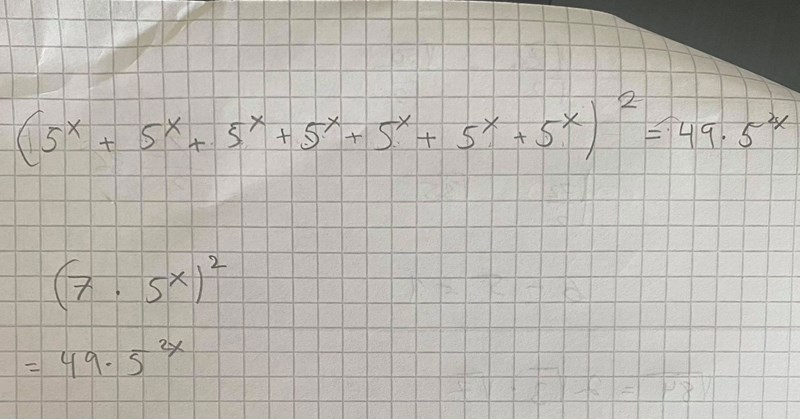 (5^x + 5^x + 5^x + 5^x + 5^x + 5^x + 5^x)^2 = 49 · 5^2x
(7 · 5^x)^2
= 49 · 5^2x